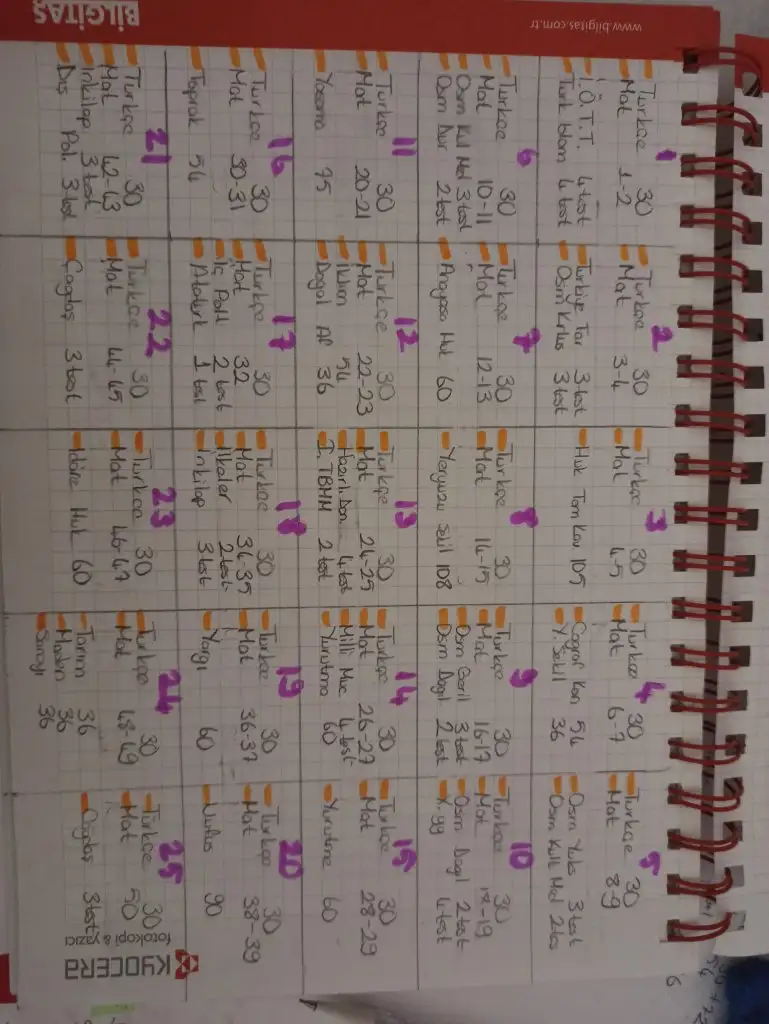 www.bilgitas.com.tr
BİLGİTAŞ
1
Türkçe 30
Mat 1-2
İ.Ö.T.T. 4 test
Türk İslam 4 test
2
Türkçe 30
Mat 3-4
Türkiye Tar 3 test
Osm Krlş 3 test
3
Türkçe 30
Mat 4-5
Huk Tem Kav 105
4
Türkçe 30
Mat 6-7
Coğraf Kon 54
Y. Şekil 36
5
Türkçe 30
Mat 8-9
Osm Yüks 3 test
Osm Kült Med 2 tes
6
Türkçe 30
Mat 10-11
Osm Kül Med 3 test
Osm Dur 2 test
7
Türkçe 30
Mat 12-13
Anayasa Huk 60
8
Türkçe 30
Mat 14-15
Yeryüzü Şekil 108
9
Türkçe 30
Mat 16-17
Osm Geril 3 test
Osm Dağıl 2 test
10
Türkçe 30
Mat 18-19
Osm Dağıl 2 test
X. yy 4 test
11
Türkçe 30
Mat 20-21
Yasama 75
12
Türkçe 30
Mat 22-23
İklim 54
Doğal Af 36
13
Türkçe 30
Mat 24-25
Hazırlı. Dön 4 test
I. TBMM 2 test
14
Türkçe 30
Mat 26-27
Milli Müc 4 test
Yürütme 60
15
Türkçe 30
Mat 28-29
Yürütme 60
16
Türkçe 30
Mat 30-31
Toprak 54
17
Türkçe 30
Mat 32
İç Poli 2 test
Atatürk 1 test
18
Türkçe 30
Mat 34-35
İlkeler 2 test
İnkılap 3 test
19
Türkçe 30
Mat 36-37
Yargı 60
20
Türkçe 30
Mat 38-39
Nüfus 90
21
Türkçe 30
Mat 42-43
İnkılap 3 test
Dış Pol. 3 test
22
Türkçe 30
Mat 44-45
Çağdaş 3 test
23
Türkçe 30
Mat 46-47
İdare Huk 60
24
Türkçe 30
Mat 48-49
Tarım 36
Maden 36
Sanayi 36
25
Türkçe 30
Mat 50
Çağdaş 3 test
KYOCERA
fotokopi & yazıcı
6